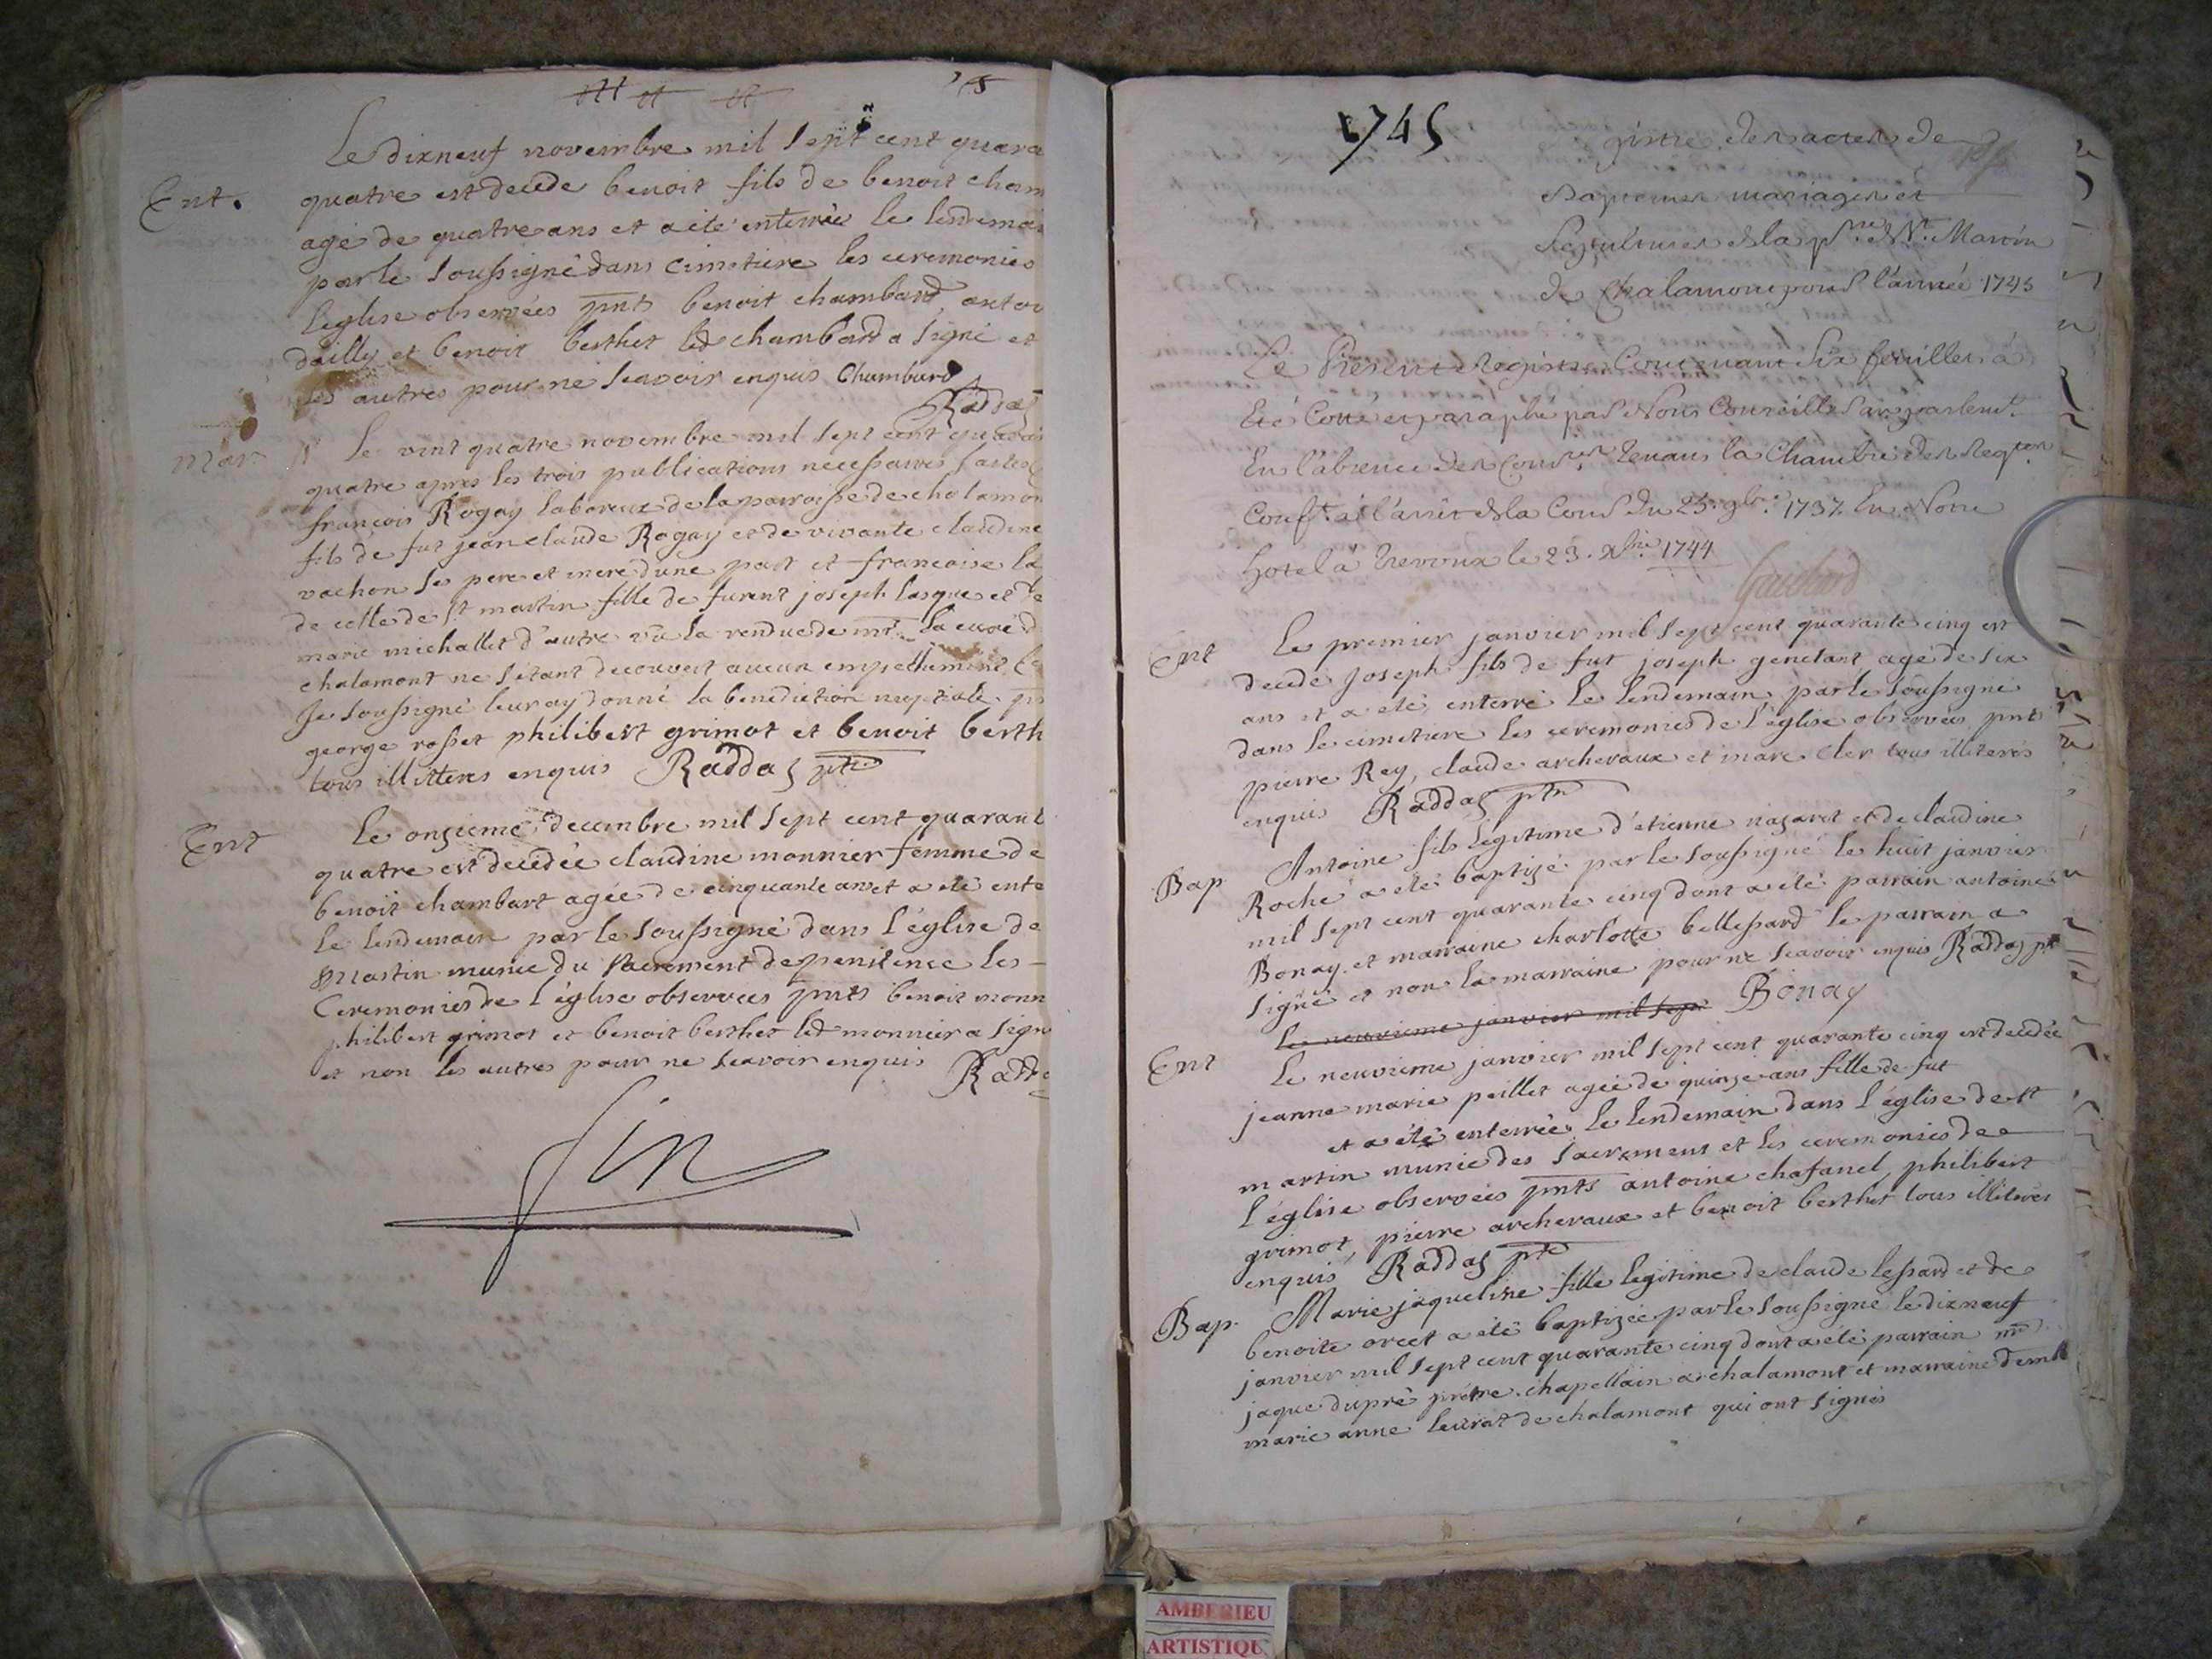 Le dixneuf novembre mil sept cent quara
Ent. quatre est decede benoit fils de benoit cham
agé de quatre ans et a été enterrée le lendemai
par le soussigné dans cimetiere les ceremonies
l'eglise observées pnts benoit chambard, antoi
dailly et benoit berthet led chambard a signé et
les autres pour ne scavoir enquis Chambard
Raddaz
Mar Le vint quatre novembre mil sept cent quara
quatre apres les trois publications necessaires faites
françois Rogay laboreur de la parroisse de chalamon
fils de fut jean claude Rogay et de vivante claudine
vachon ses pere et mere d'une part et francoise la
de celle de St martin fille de furent joseph lasque et de
marie michallet d'autre vû la rendue de mr. la curé d
chalamont ne s'etant decouvert aucun empechement
Je soussigné leur ay donné la benediction nuptiale
george rosset philibert grimot et benoit berth
tous illitteres enquis Raddaz ptre
Ent Le onzieme decembre mil sept cent quarant
quatre est decedée claudine monnier femme de
benoit chambart agée de cinquante ans et a été ente
le lendemain par le soussigné dans l'église de
martin munie du sacrement de penitence les
Ceremonies de l'église observées pnts benoit monn
philibert grimot et benoit berthet led monnier a signe
et non les autres pour ne scavoir enquis Radda
fin
1745
gistre des actes de
Baptemes mariages et
Sepultures de la psse de St. Martin
de Chalamont pour l'année 1745
Le Present Registre Contenant six feuilles a
Eté Cotté et paraphé par Nous Conseiller au parlemt.
En l'absence des Conrs. tenans la Chambre des Reqtes
Conft. a l'arrêt de la Cour du 25. 9bre. 1737. En Notre
hotel à Trevoux le 23. Xbre 1744
Guichard
Ent Le premier janvier mil sept cent quarante cinq est
decede joseph fils de fut joseph genetant agé de six
ans et a eté enterré le lendemain par le soussigné
dans le cimetiere les ceremonies de l'église observées pnts
pierre Rey, claude archeraux et marc cler tous illiterés
enquis Raddaz ptre
Bap Antoine fils legitime d'etienne nazaret et de claudine
Roche a eté baptizé par le soussigné le huit janvier
mil sept cent quarante cinq dont a été parrain antoine
Bonay et marraine charlotte bellessard le parrain a
signé et non la marraine pour ne scavoir enquis Raddaz ptre
le neuvieme janvier mil sept Bonay
Ent Le neuvieme janvier mil sept cent quarante cinq est decedée
jeanne marie peillet agée de quinze ans fille de fut
et a été enterrée le lendemain dans l'église de st
martin munie des sacremens et les ceremonies de
l'église observées pnts antoine chafanel, philibert
grimot, pierre archeraux et benoit berthet tous illiterés
enquis Raddaz ptre
Bap. Marie jaqueline fille legitime de claude lessard et de
benoite orcet a été baptizée par le soussigné le dixneuf
janvier mil sept cent quarante cinq dont a été parrain mr
jaque dupré prêtre chapellain a chalamont et marraine demlle
marie anne leurat de chalamont qui ont signés
AMBERIEU
ARTISTIQU